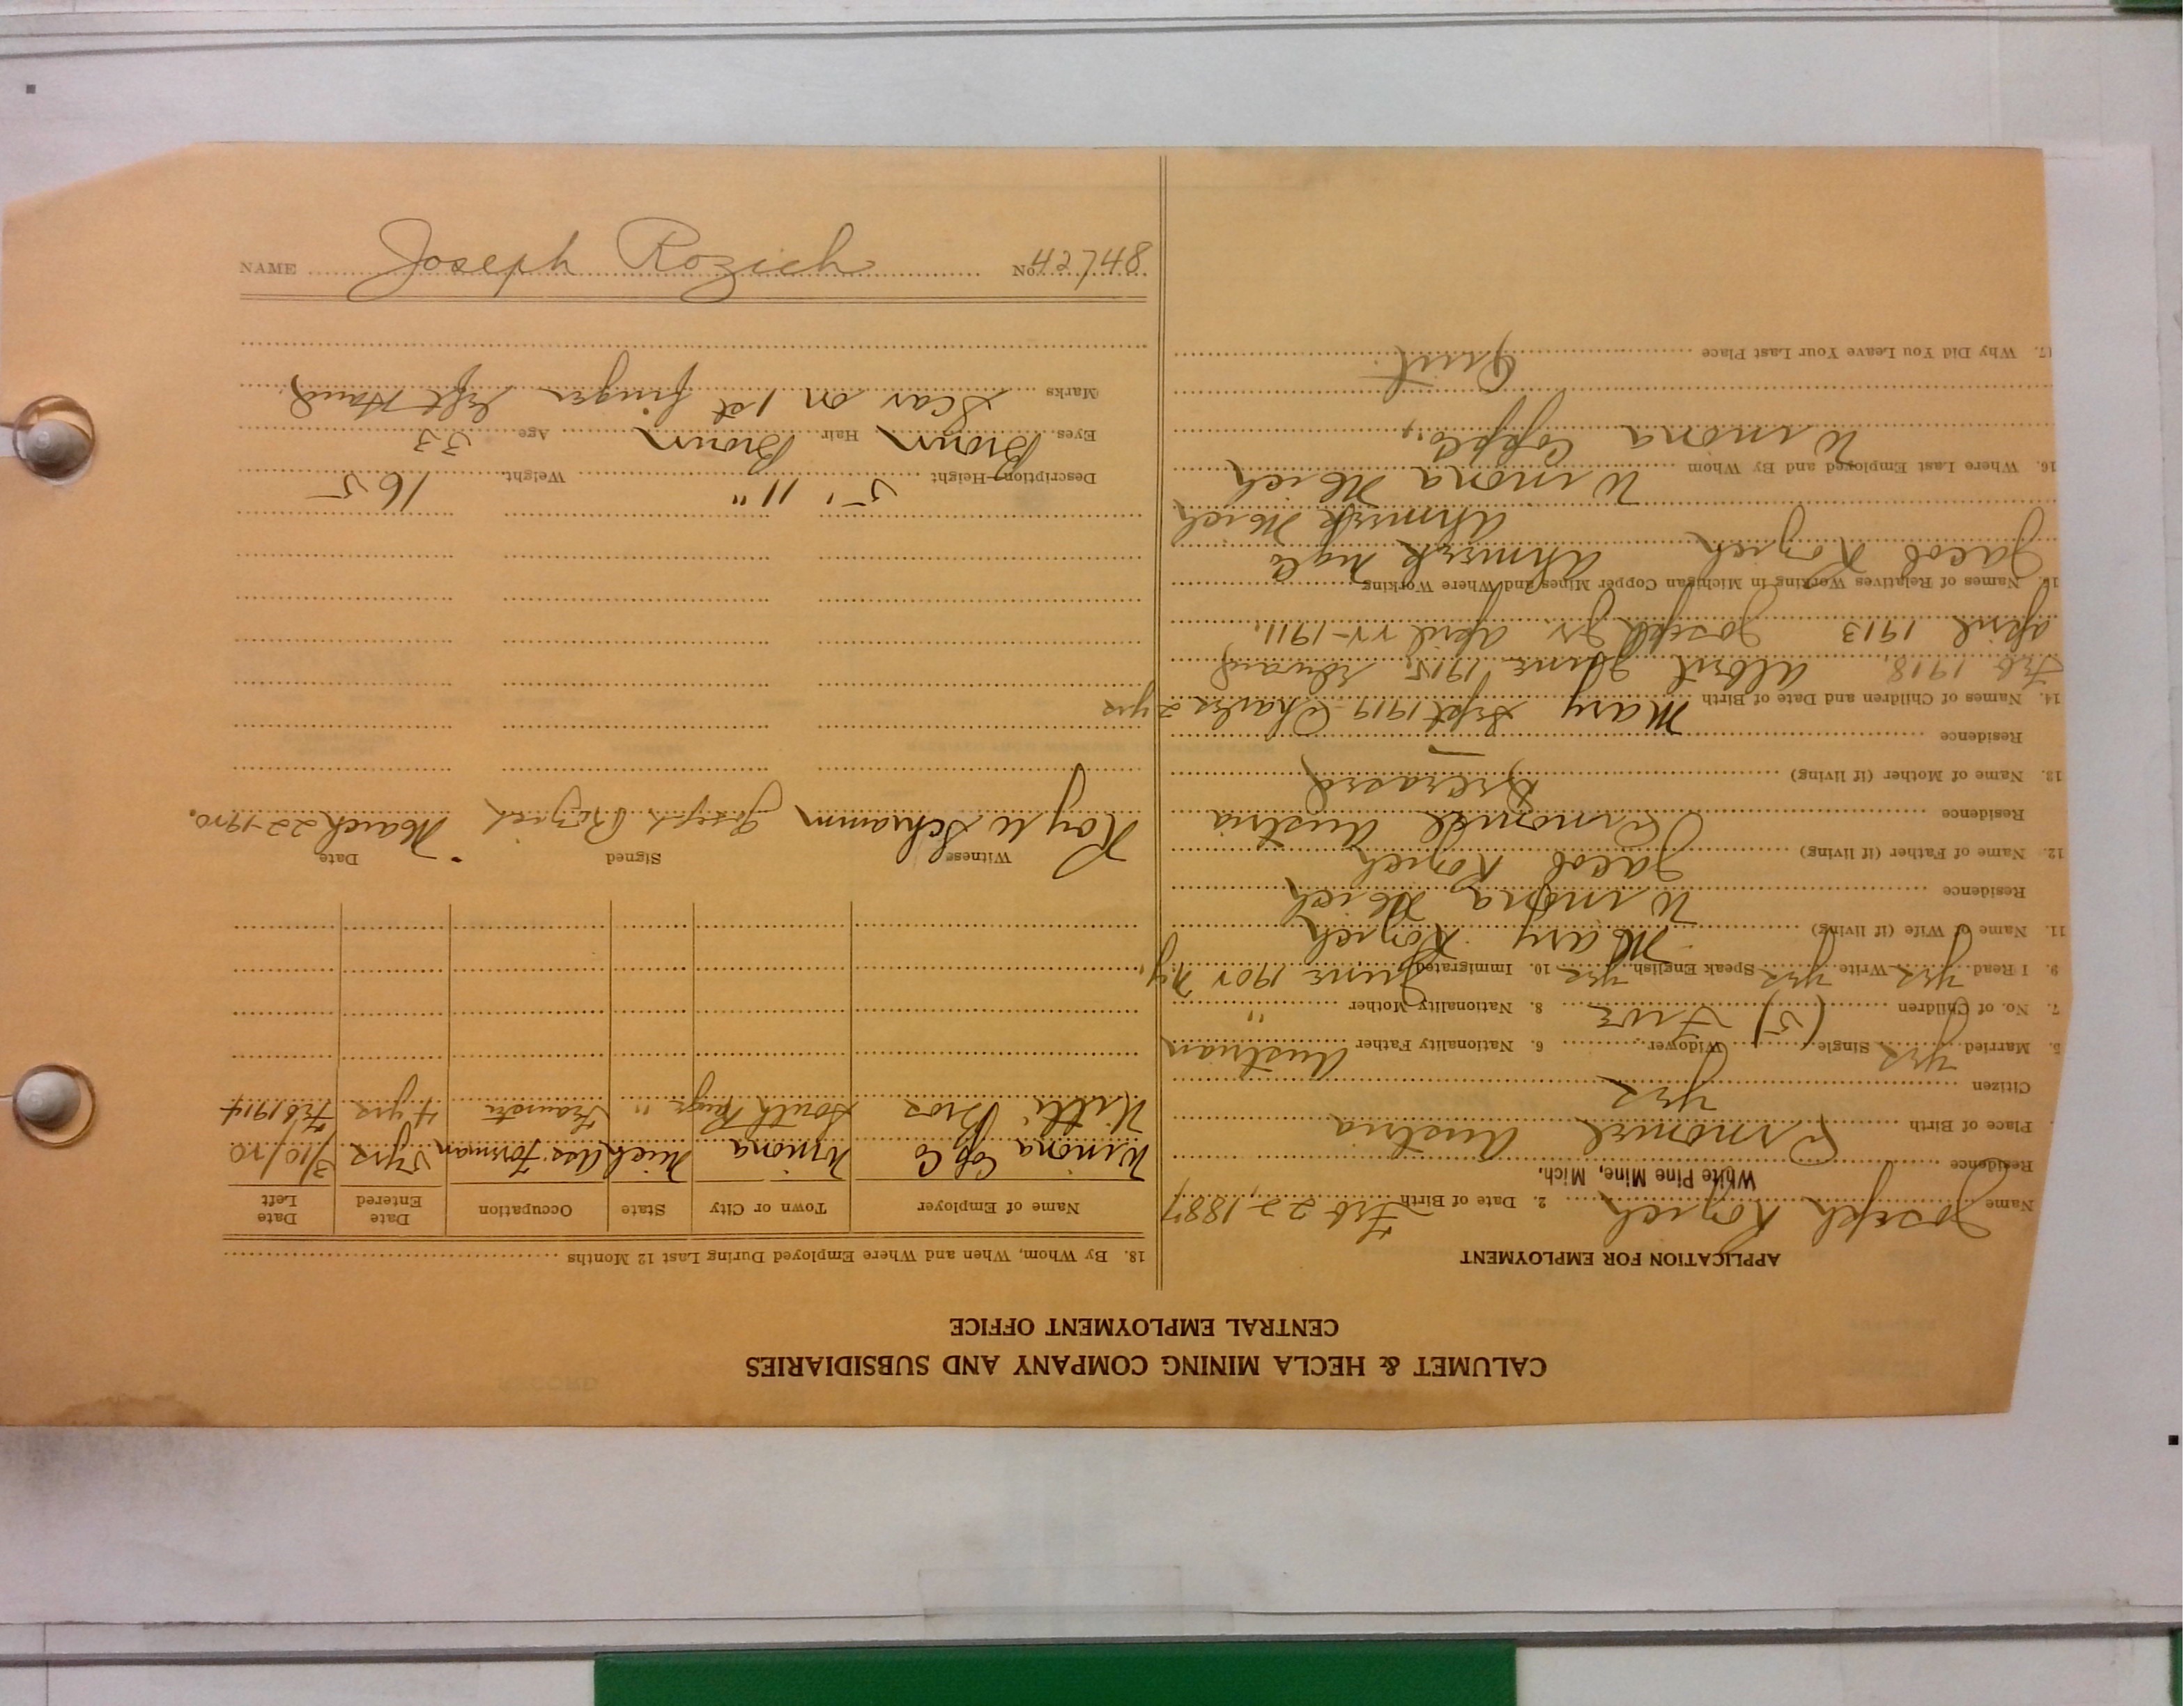 CALUMET & HECLA MINING COMPANY AND SUBSIDIARIES
CENTRAL EMPLOYMENT OFFICE
APPLICATION FOR EMPLOYMENT
Name Joseph Rozich 2. Date of Birth Feb 22, 1887
White Pine Mine, Mich.
Residence
Place of Birth Austria
Citizen yes
5. Married yes Single Widower 6. Nationality Father Austrian
7. No. of Children (5) Five 8. Nationality Mother "
9. I Read yes Write yes Speak English yes 10. Immigrated June 190 N.Y.
11. Name of Wife (if living) Mary Rozich
Residence Winona Mich
12. Name of Father (if living) Jacob Rozich
Residence Austria
13. Name of Mother (if living) Deceased
Residence
14. Names of Children and Date of Birth Mary Sept 1919 Charles 2 yrs
Feb 1918, Albert June 1915, Edward
April 1913 Joseph Jr April 1911.
15. Names of Relatives Working in Michigan Copper Mines and Where Working
Jacob Rozich Ahmeek Mg Co
Ahmeek Mich
Winona Mich
16. Where Last Employed and By Whom
Winona Cop Co.,
17. Why Did You Leave Your Last Place Quit
18. By Whom, When and Where Employed During Last 12 Months
Name of Employer Town or City State Occupation Date Entered Date Left
Winona Cop Co Winona Mich Ass. Forman 5 yrs 3/10/20
Bros South Range " 4 yrs Feb 1914
Witness Signed Date
Roy W Schramm Joseph Rozich March 22-1920.
Description—Height 5' 11" Weight 165
Eyes Brown Hair Brown Age 33
Marks Scar on 1st finger left Hand
NAME Joseph Rozich No. 42748